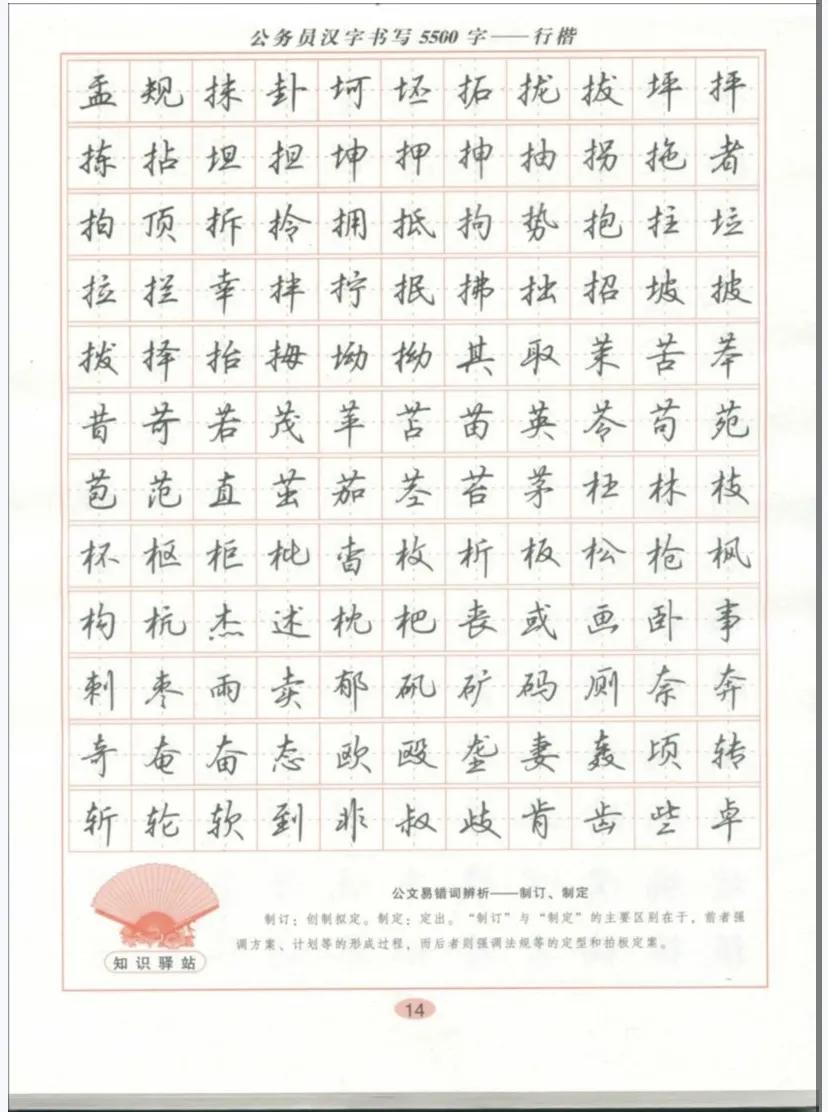 公务员汉字书写5500字——行楷
盂规抹卦坷坯拓拢拔坪抨
拣拈坦担坤押抻抽拐拖者
拍顶拆拎拥抵拘势抱拄垃
拉拦幸拌拧抿拂拙招坡披
拨择抬拇坳拗其取茉苦苯
昔苛若茂苹苫苗英苓苟苑
苞范直茁茄茎苔茅枉林枝
杯枢柜枇杳枚析板松枪枫
构杭杰述枕杷丧或画卧事
刺枣雨卖郁矾矿码厕奈奔
奇奄奋态欧殴垄妻轰顷转
斩轮软到非叔歧肯齿些卓
公文易错词辨析——制订、制定
制订：创制拟定。制定：定出。“制订”与“制定”的主要区别在于，前者强
调方案、计划等的形成过程，而后者则强调法规等的定型和拍板定案。
知识驿站
14